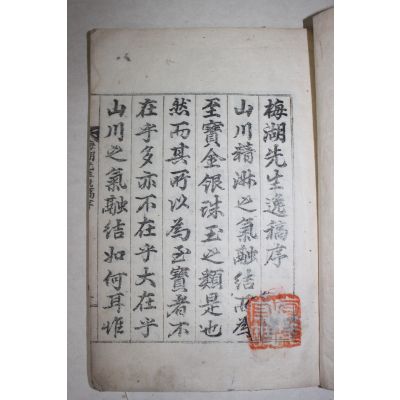 梅湖先生逸稿序
山川精淋之氣融結而為
至寶金銀珠玉之類是也
然而其所以為至寶者不
在乎多亦不在乎大在乎
山川之氣融結如何耳惟